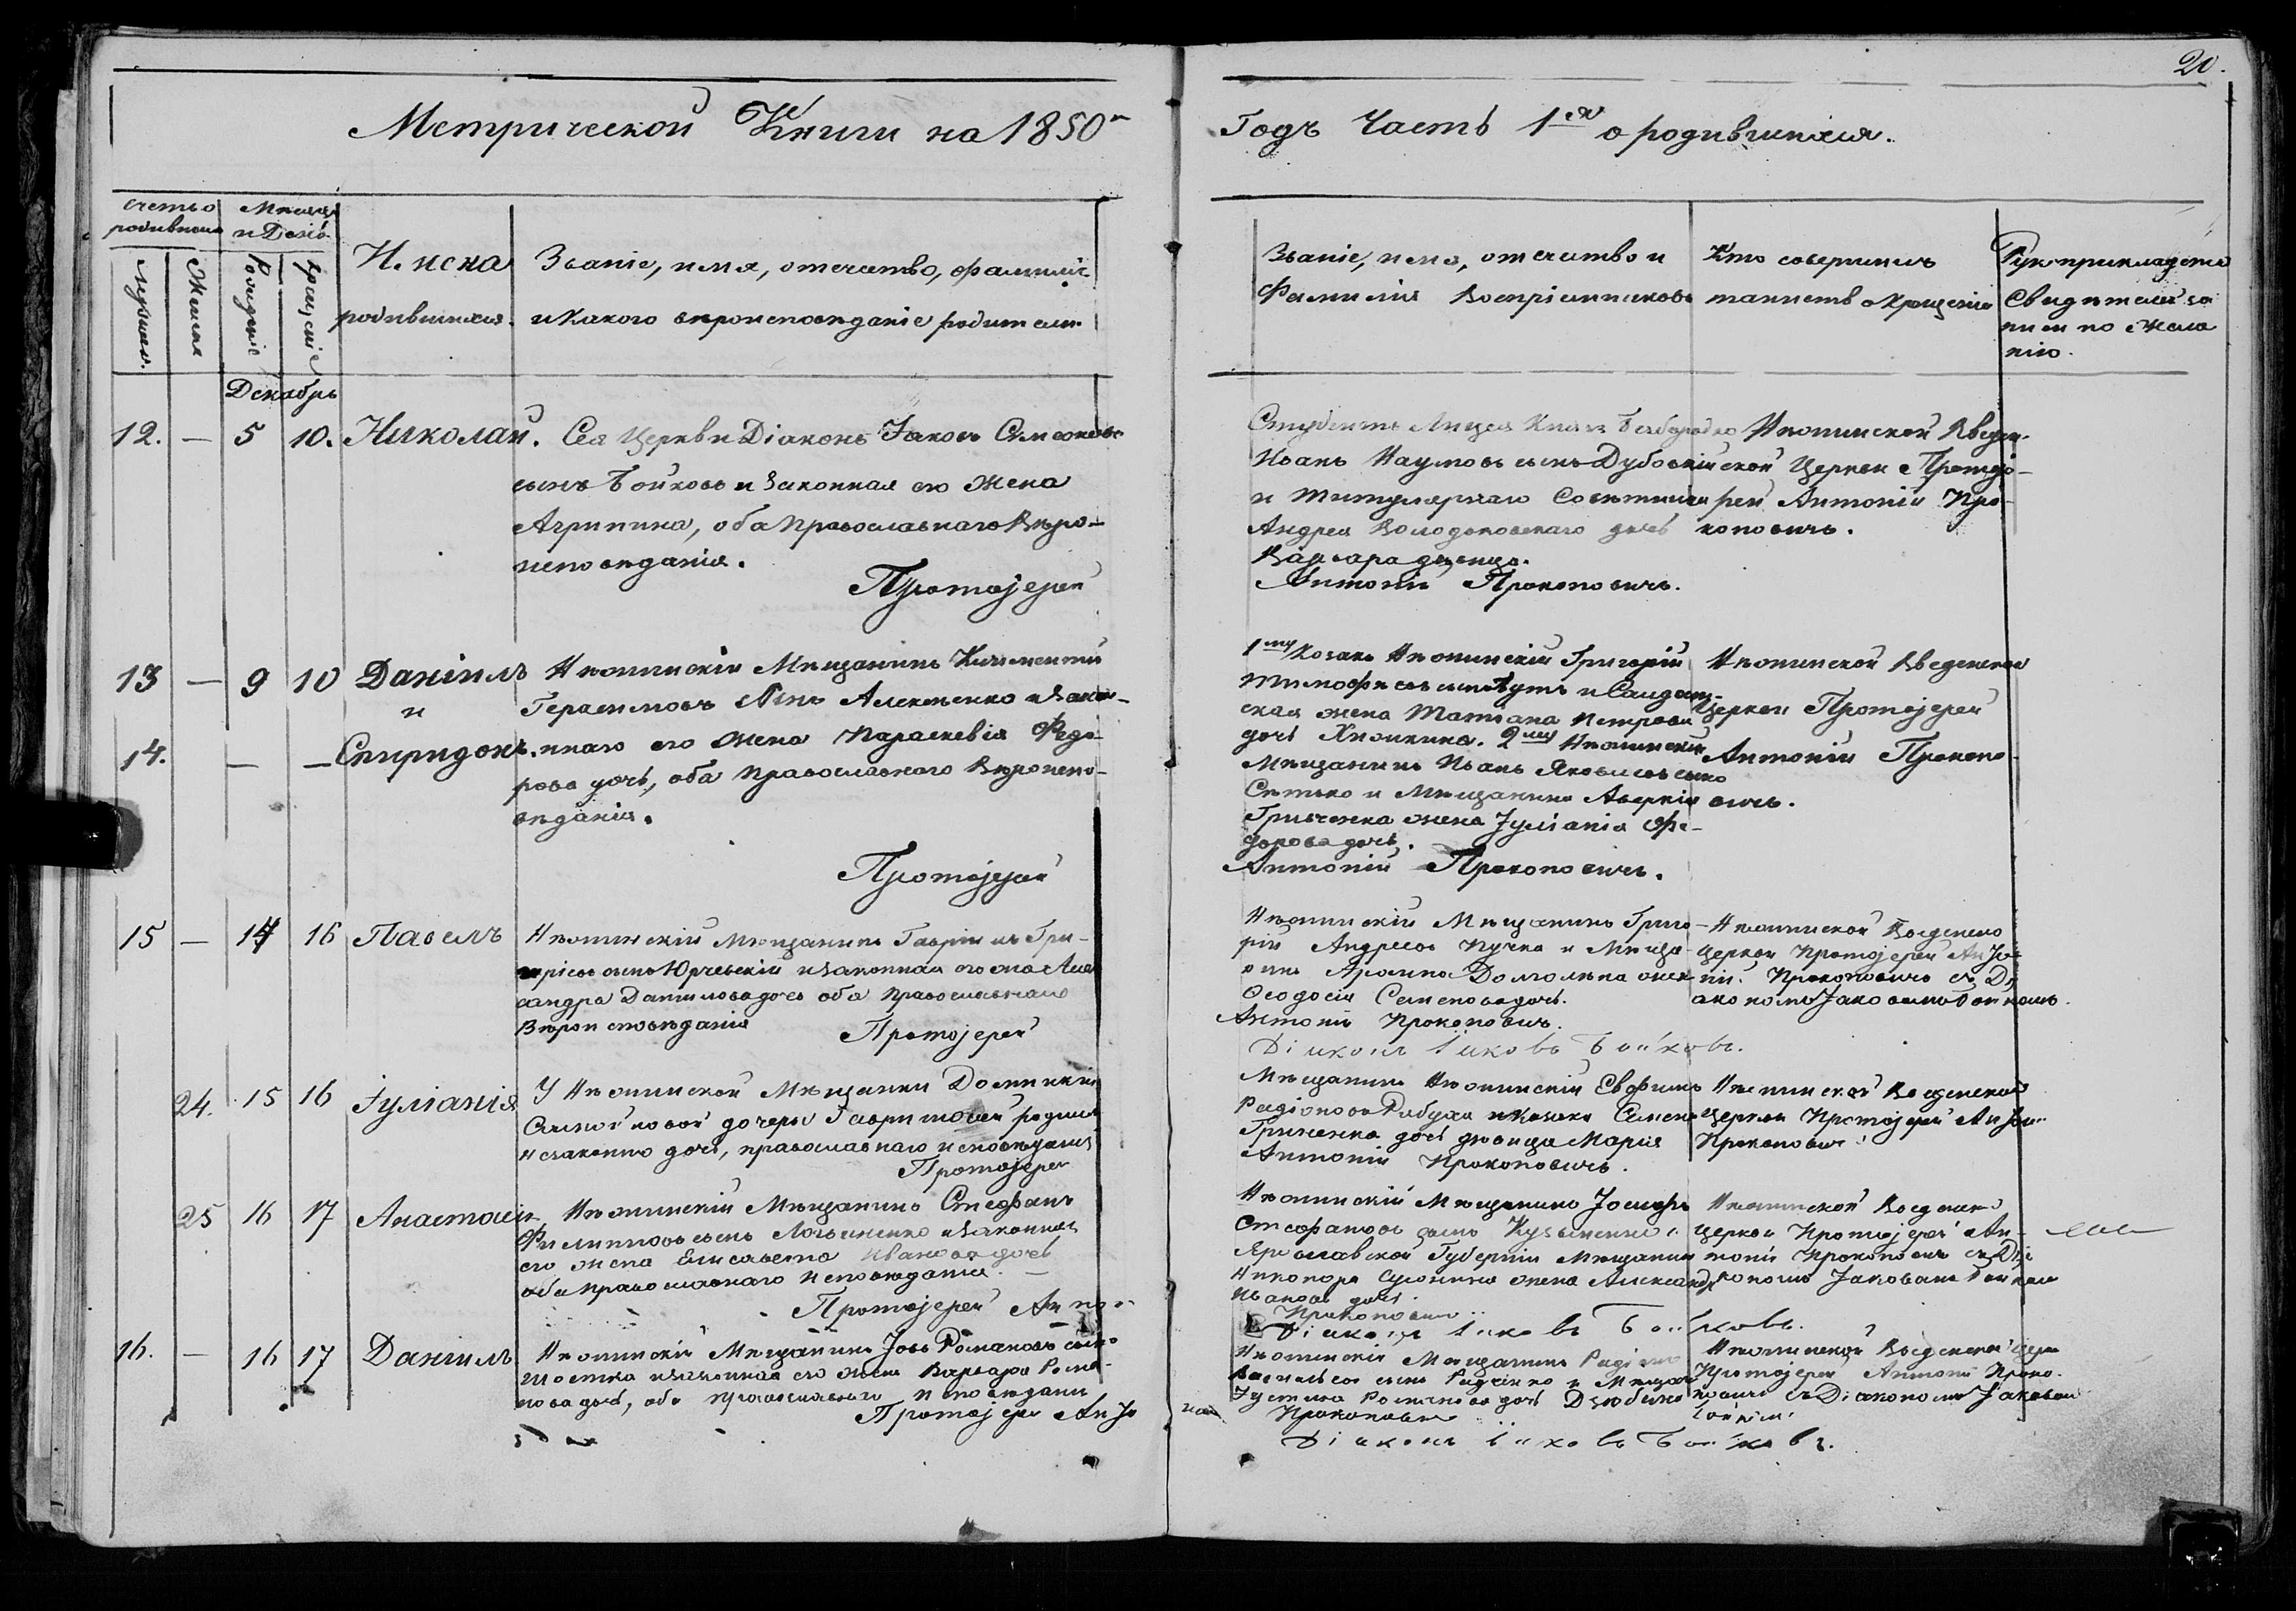 20.
Метрической Книги на 1850й
Годъ Часть 1ая о родившихся.
счетъ родившихся
Мѣсяцъ и День
Мужеска
Женска
Рожденіе
Крещеніе
Имена
родившихся.
Званіе, имя, отечество, фамилія
и какого вѣроисповѣданіе родители
Званіе, имя, отечество и
Фамилія Воспріемниковъ
Кто совершилъ
таинство Крещенія
Рукоприкладство
Свидѣтелей за
писи по жела
нію.
Декабрь
12. — 5 10. Николай.
Сея Церкви Діаконъ Іаковъ Симеоновъ
сынъ Бойковъ и Законная его жена
Агрипина, оба Православнаго Вѣро-
исповѣданія.
Протоіерей
Студентъ Лицея Князя Безбородко
Иванъ Наумовъ сынъ Дубов
и Титулярнаго Совѣтника
Андрея Володковскаго дочь
Варвара дѣвица.
Антоній Прокоповичъ.
Нѣжинской Введен-
ской Церкви Протоіе-
рей Антоній Про-
коповичъ.
13 — 9 10 Даніилъ
и
14. — — Спиридонъ.
Нѣжинскій Мѣщанинъ Климентій
Герасимовъ сынъ Алексѣенко и Закон-
ная его жена Параскевія Федо-
рова дочь, оба Православнаго Вѣроиспо-
вѣданія.
Протоіерей
1му Козакъ Нѣжинскій Григорій
Тимофѣевъ сынъ
ская жена Татіана Петрова
дочь . 2му Нѣжинскій
Мѣщанинъ Иванъ Яковлевъ сынъ
Сѣтько и Мѣщанина Аверкія
Гриченка жена Іуліанія Фе-
дорова дочь.
Антоній Прокоповичъ.
Нѣжинской Введенской
Церкви Протоіерей
Антоній Прокопо-
вичъ.
15 — 14 16 Павелъ
Нѣжинскій Мѣщанинъ Гавріилъ Гри-
горіевъ сынъ Юрчевскій и законная его жена Алек
сандра Даниловадочь оба Православнаго
Вѣроисповѣданія
Протоіерей
Нѣжинскій Мѣщанинъ Григо-
рій Андреевъ Пучка и Мѣща-
нина жена
Ѳеодосія Семеновадочь.
Антоній Прокоповичъ.
Діаконъ Іаковъ Бойковъ.
Нѣжинской Введенско
Церкви Протоіерей Анто-
ній Прокоповичъ съ Ді
акономъ Іаковомъ Бойковымъ.
24. 15 16 Іуліанія
У Нѣжинской Мѣщанки Домникіи
дочери родилась
незаконно дочь, православнаго исповѣданія
Протоіерей
Мѣщанинъ Нѣжинскій Евфимъ
Родіоновъ и Козака Семена
Гриченка дочь дѣвица Марія
Антоній Прокоповичъ.
Нѣжинской Введенской
Церкви Протоіерей Антоній
Прокоповичъ
25 16 17 Анастасія
Нѣжинскій Мѣщанинъ Стефанъ
Филипповъ сынъ и Законная
его жена Елисавета Ивановадочь
оба православнаго Исповѣданія.
Протоіерей Антоній
Нѣжинскій Мѣщанинъ Іосифъ
Стефановъ сынъ Кузьменко и
Ярославской Губерніи Мѣщанина
Никонора жена Александра
Иванова дочь.
Прокоповичъ
Діаконъ Іаковъ Бойковъ.
Нѣжинской Введенско
Церкви Протоіерей Ан-
тоній Прокоповичъ съ Діа
кономъ Іаковомъ Бойковымъ
16. — 16 17 Даніилъ
Нѣжинскій Мѣщанинъ Іовъ Романовъ сынъ
и законная его жена Варвара Рома-
нова дочь, оба православнаго исповѣданія
Протоіерей Анто
Нѣжинскій Мѣщанинъ Родіонъ
Васильевъ сынъ и Мѣщан
Іустина Романова дочь
ній Прокоповичъ
Діаконъ Іаковъ Бойковъ.
Нѣжинской Введенской Церк
Протоіерей Антоній Проко-
повичъ съ Діакономъ Іаковомъ
Бойковымъ